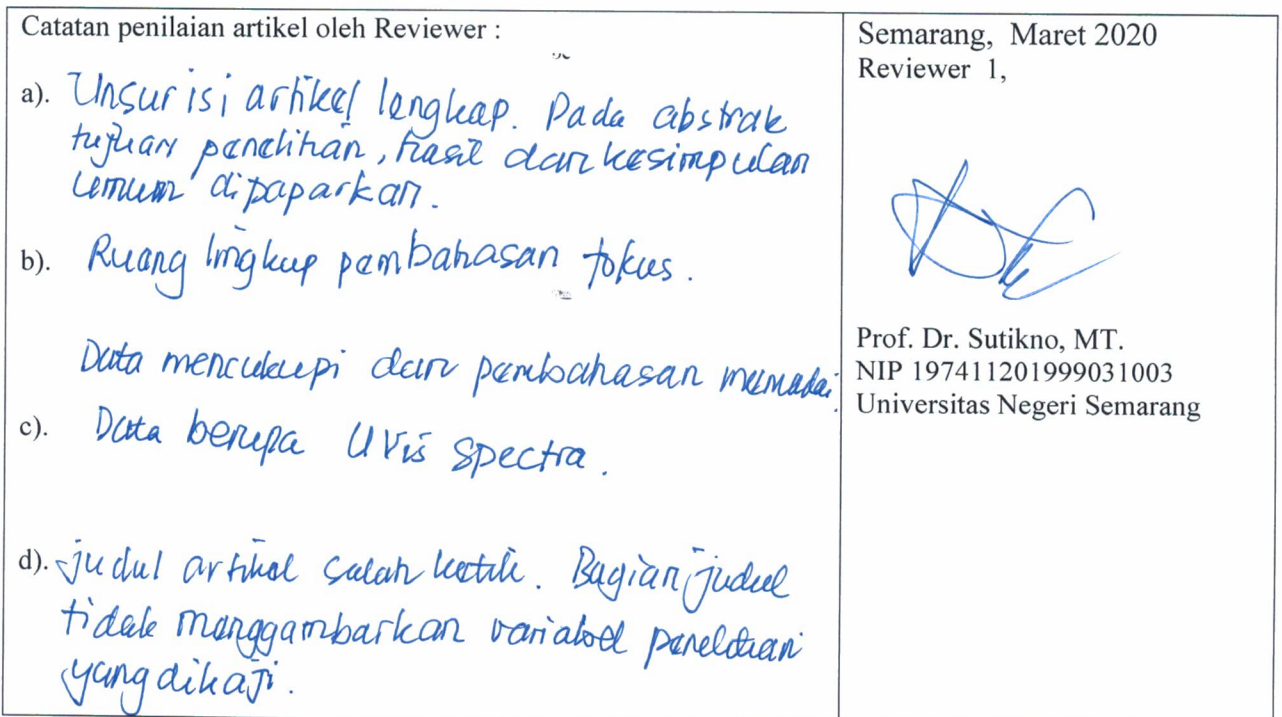 Catatan penilaian artikel oleh Reviewer :
a). Unsur isi artikel lengkap. Pada abstrak
tujuan penelitian, hasil dan kesimpulan
umum dipaparkan.
b). Ruang lingkup pembahasan fokus.
Data mencukupi dan pembahasan memadai.
c). Data berupa UVis Spectra.
d). judul artikel salah ketik. Bagian judul
tidak menggambarkan variabel penelitian
yang dikaji.
Semarang, Maret 2020
Reviewer 1,
Prof. Dr. Sutikno, MT.
NIP 197411201999031003
Universitas Negeri Semarang